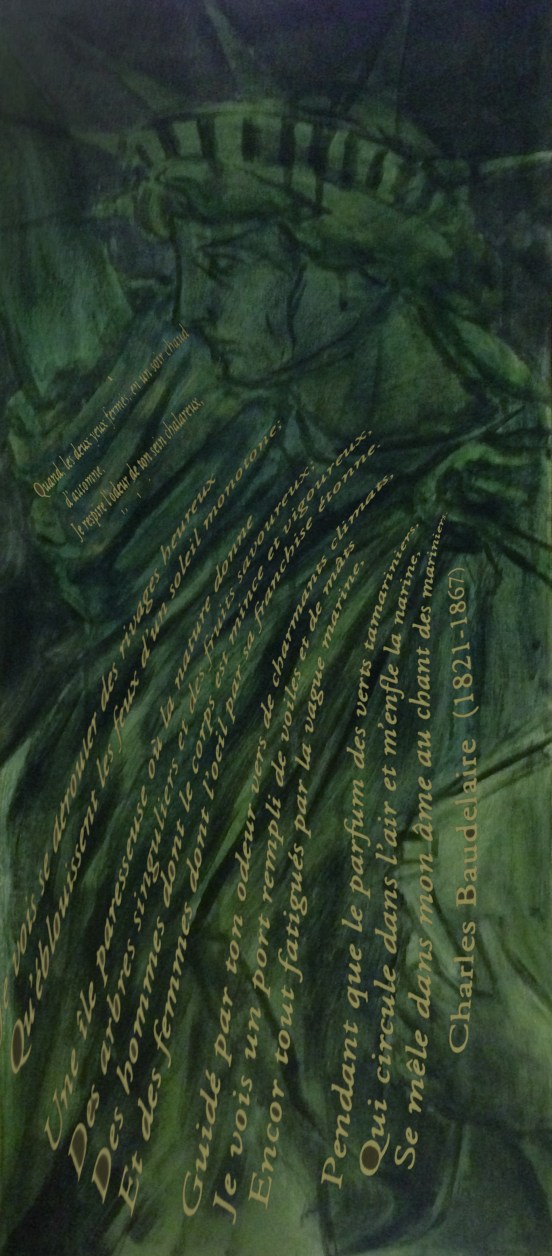 Quand, les deux yeux fermés, en un soir chaud
d'automne,
Je respire l'odeur de ton sein chaleureux,
vois se dérouler des rivages heureux
Qu'éblouissent les feux d'un soleil monotone;
Une île paresseuse où la nature donne
Des arbres singuliers et des fruits savoureux;
Des hommes dont le corps est mince et vigoureux,
Et des femmes dont l'oeil par sa franchise étonne.
Guidé par ton odeur vers de charmants climats,
Je vois un port rempli de voiles et de mâts
Encor tout fatigués par la vague marine,
Pendant que le parfum des verts tamariniers,
Qui circule dans l'air et m'enfle la narine,
Se mêle dans mon âme au chant des mariniers.
Charles Baudelaire (1821-1867)